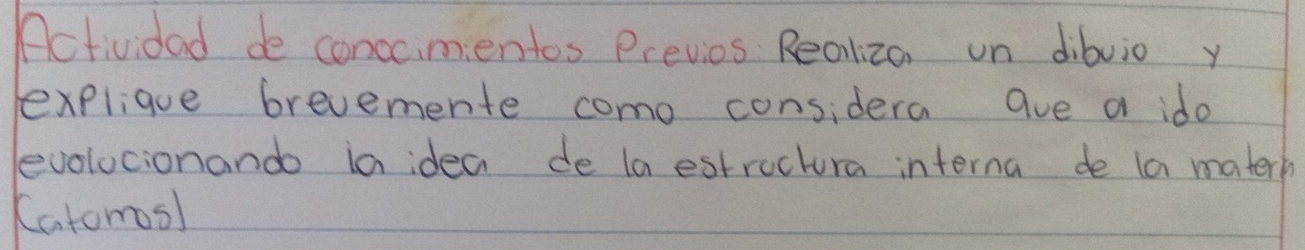 Actividad de conocimientos Previos: Realiza un dibujo y
explique brevemente como considera que a ido
evolucionando la idea de la estructura interna de la materia
(atomos)